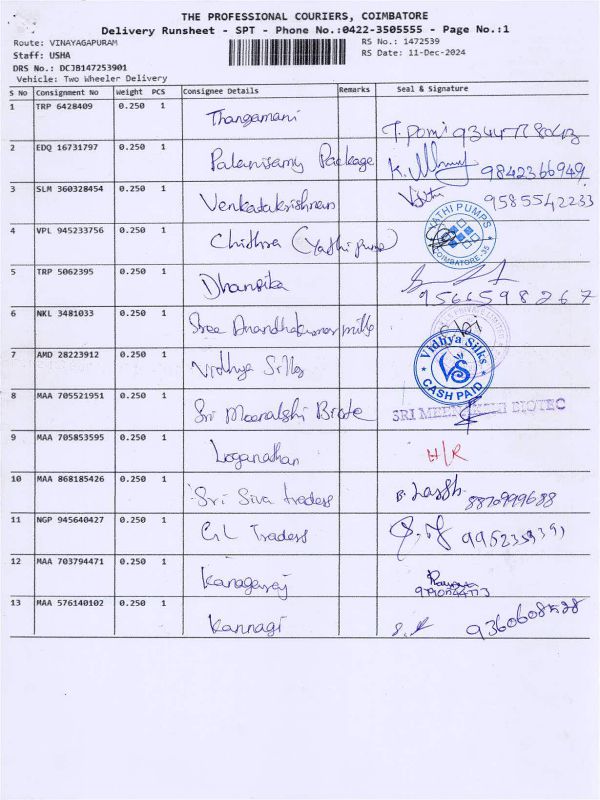 THE PROFESSIONAL COURIERS, COIMBATORE
Delivery Runsheet - SPT - Phone No.:0422-3505555 - Page No.:1
Route: VINAYAGAPURAM RS No.: 1472539
Staff: USHA RS Date: 11-Dec-2024
DRS No.: DCJB147253901
Vehicle: Two Wheeler Delivery
S No Consignment No Weight PCS Consignee Details Remarks Seal & Signature
1 TRP 6428409 0.250 1 Thangamani
2 EDQ 16731797 0.250 1 Palanisamy Package 9842366949
3 SLM 360328454 0.250 1 Venkatakrishnan 9585542233
4 VPL 945233756 0.250 1 Chithra (Yathi pump) YATHI PUMPS COIMBATORE-35
5 TRP 5062395 0.250 1 Dhansika 9566598267
6 NKL 3481033 0.250 1 Sree Anandhakumar mills
7 AMD 28223912 0.250 1 Vidhya Silks Vidhya Silks VS CASH PAID
8 MAA 705521951 0.250 1 Sri Meenakshi Biote SRI MEENAKSHI BIOTEC
9 MAA 705853595 0.250 1 Loganathan H/R
10 MAA 868185426 0.250 1 Sri Siva traders 8870999688
11 NGP 945640427 0.250 1 GL Traders
12 MAA 703794471 0.250 1 Kanagaraj
13 MAA 576140102 0.250 1 Kannagi